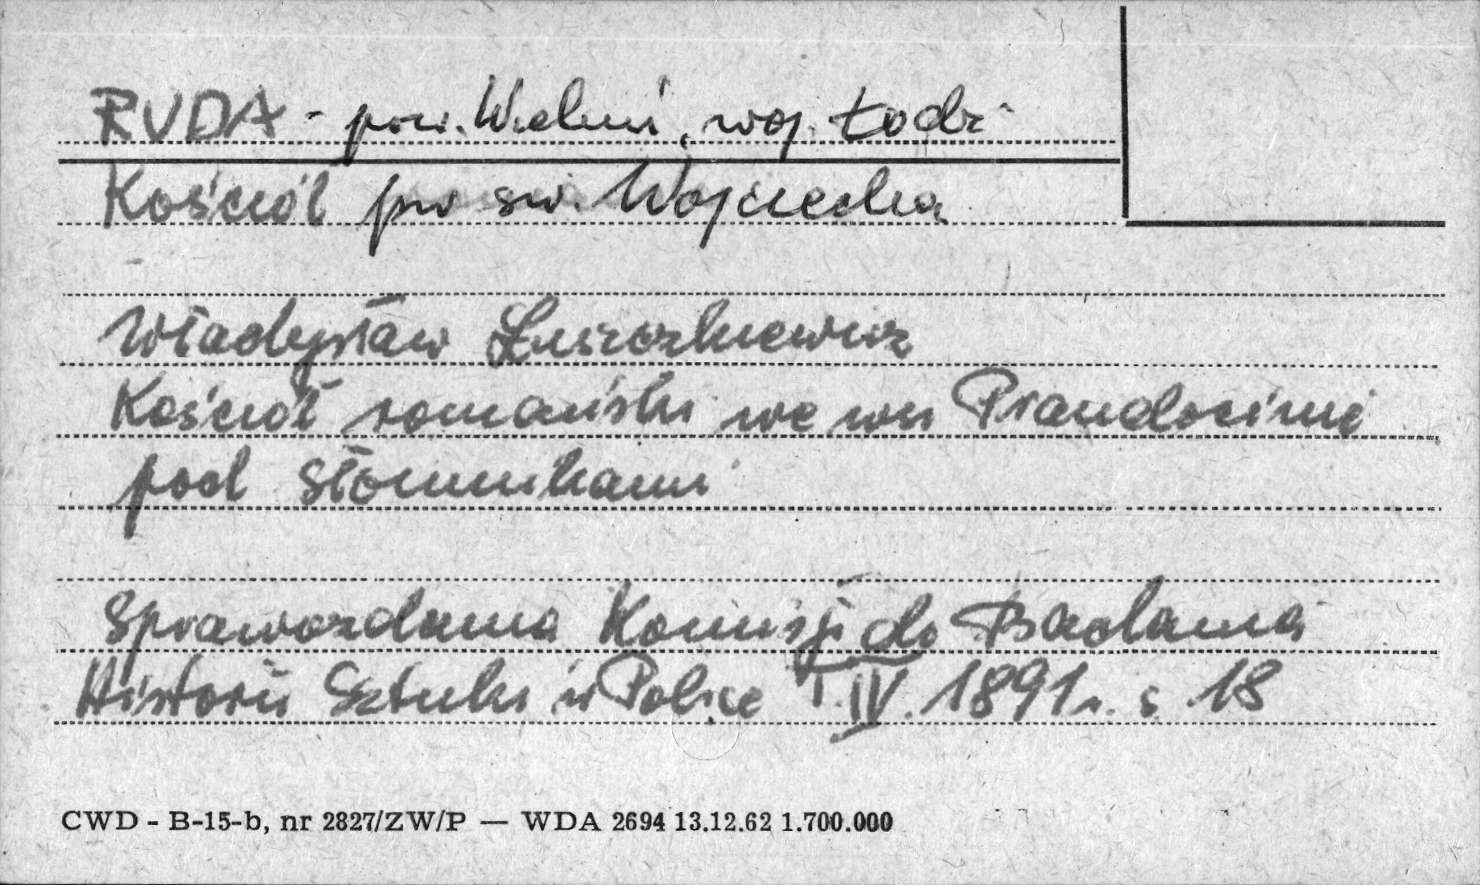 RUDA - pow. Wieluń, woj. Łódź
Kościół pw św. Wojciecha
Władysław Łuszczkiewicz
Kościół romański we wsi Prandocinie
pod Słomnikami
Sprawozdania Komisji do Badania
Historii Sztuki w Polsce T. IV. 1891 r. s 18
CWD - B-15-b, nr 2827/ZW/P — WDA 2694 13.12.62 1.700.000